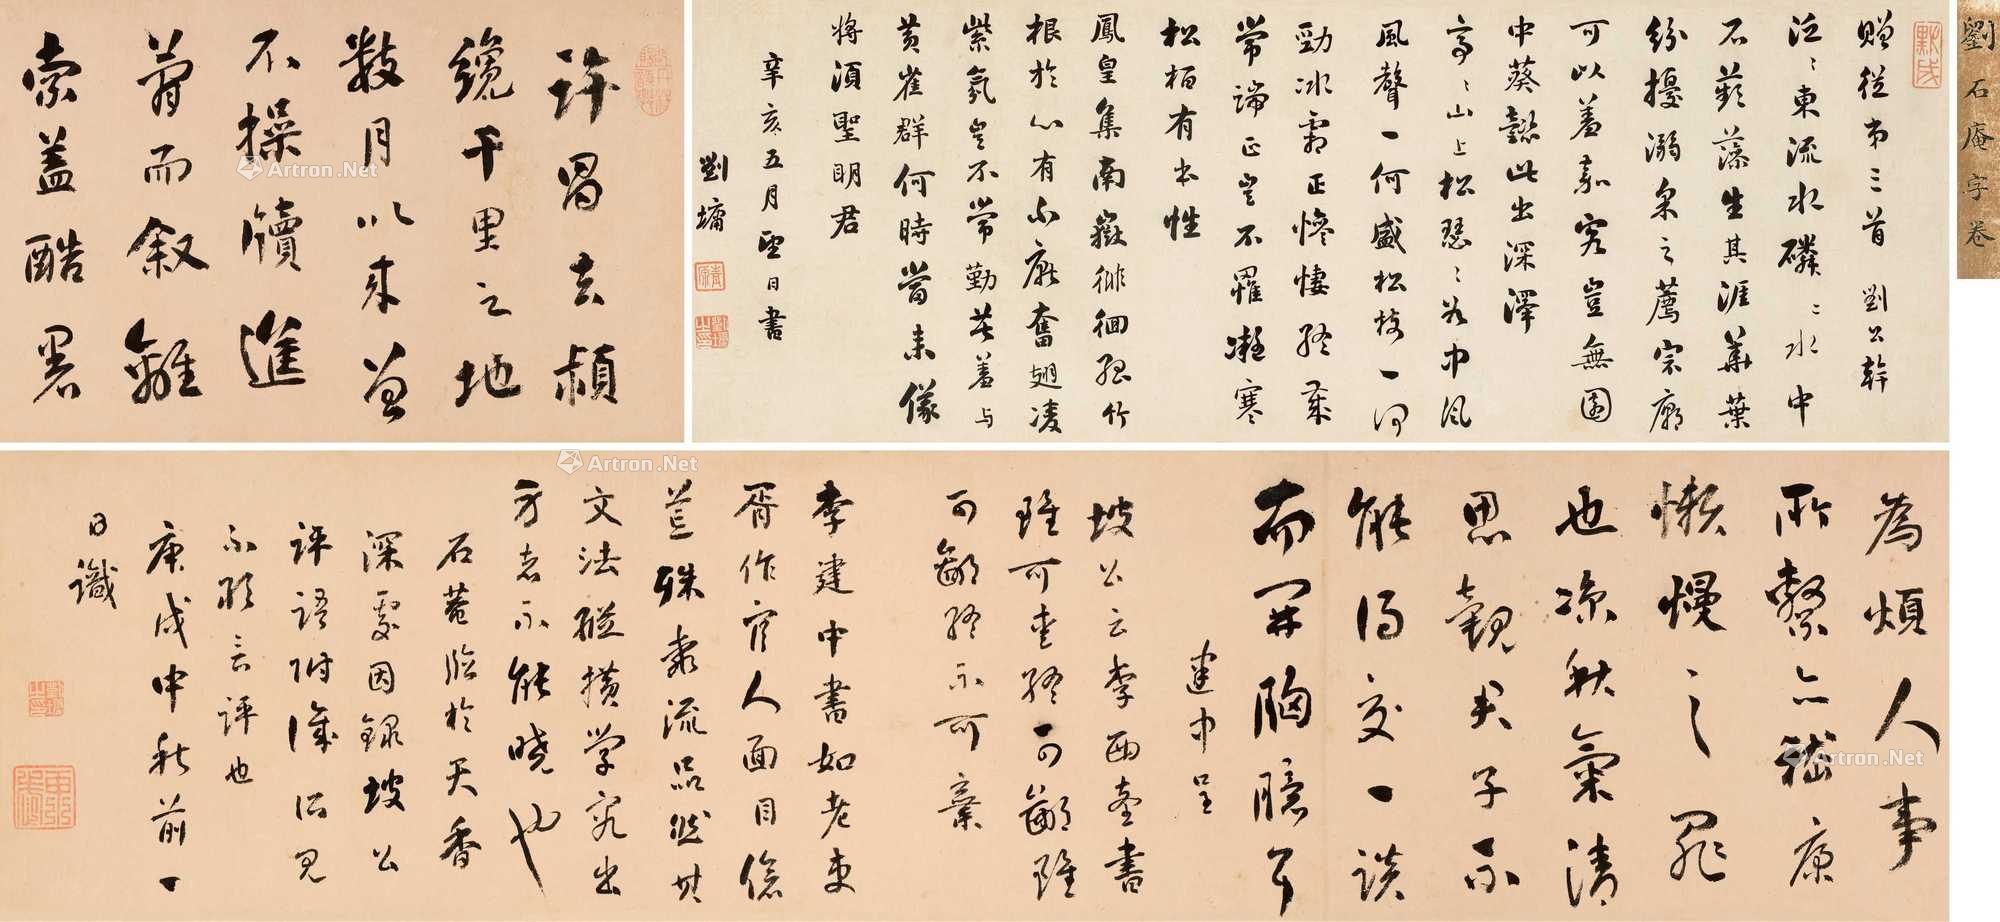 劉石庵字卷
贈從弟三首 劉公幹
泛〻東流水磷〻水中
石蘋藻生其涯華葉
紛擾溺采之薦宗廟
可以羞嘉客豈無園
中葵懿此出深澤
亭〻山上松瑟〻谷中風
風聲一何盛松枝一何
勁冰霜正慘悽終歲
常端正豈不羅凝寒
松柏有本性
鳳皇集南嶽徘徊孤竹
根於心有不厭奮翅凌
紫氛豈不常勤苦羞與
黃雀群何時當來儀
將須聖明君
辛亥五月望日書
劉墉
許昌去潁
纔千里之地
數月以來曾
不操牘進
而敘離
索蓋酷暑
為煩人事
所繫亦嵇康
懶慢之罪
也涼秋氣清
思觀夫子不
能得交一談
而開胸臆耳
建中呈
坡公云李西臺書
雖可愛終可鄙雖
可鄙終不可棄
李建中書如老吏
胥作官人面目
殊流品然其
文法縱橫學究出
身者不能曉也
石菴臨於天香
深處因錄坡公
評語附識所見
不敢言評也
庚戌中秋前一
日識
Artron.Net
Artron.Net
Artron.Net
Artron.Net